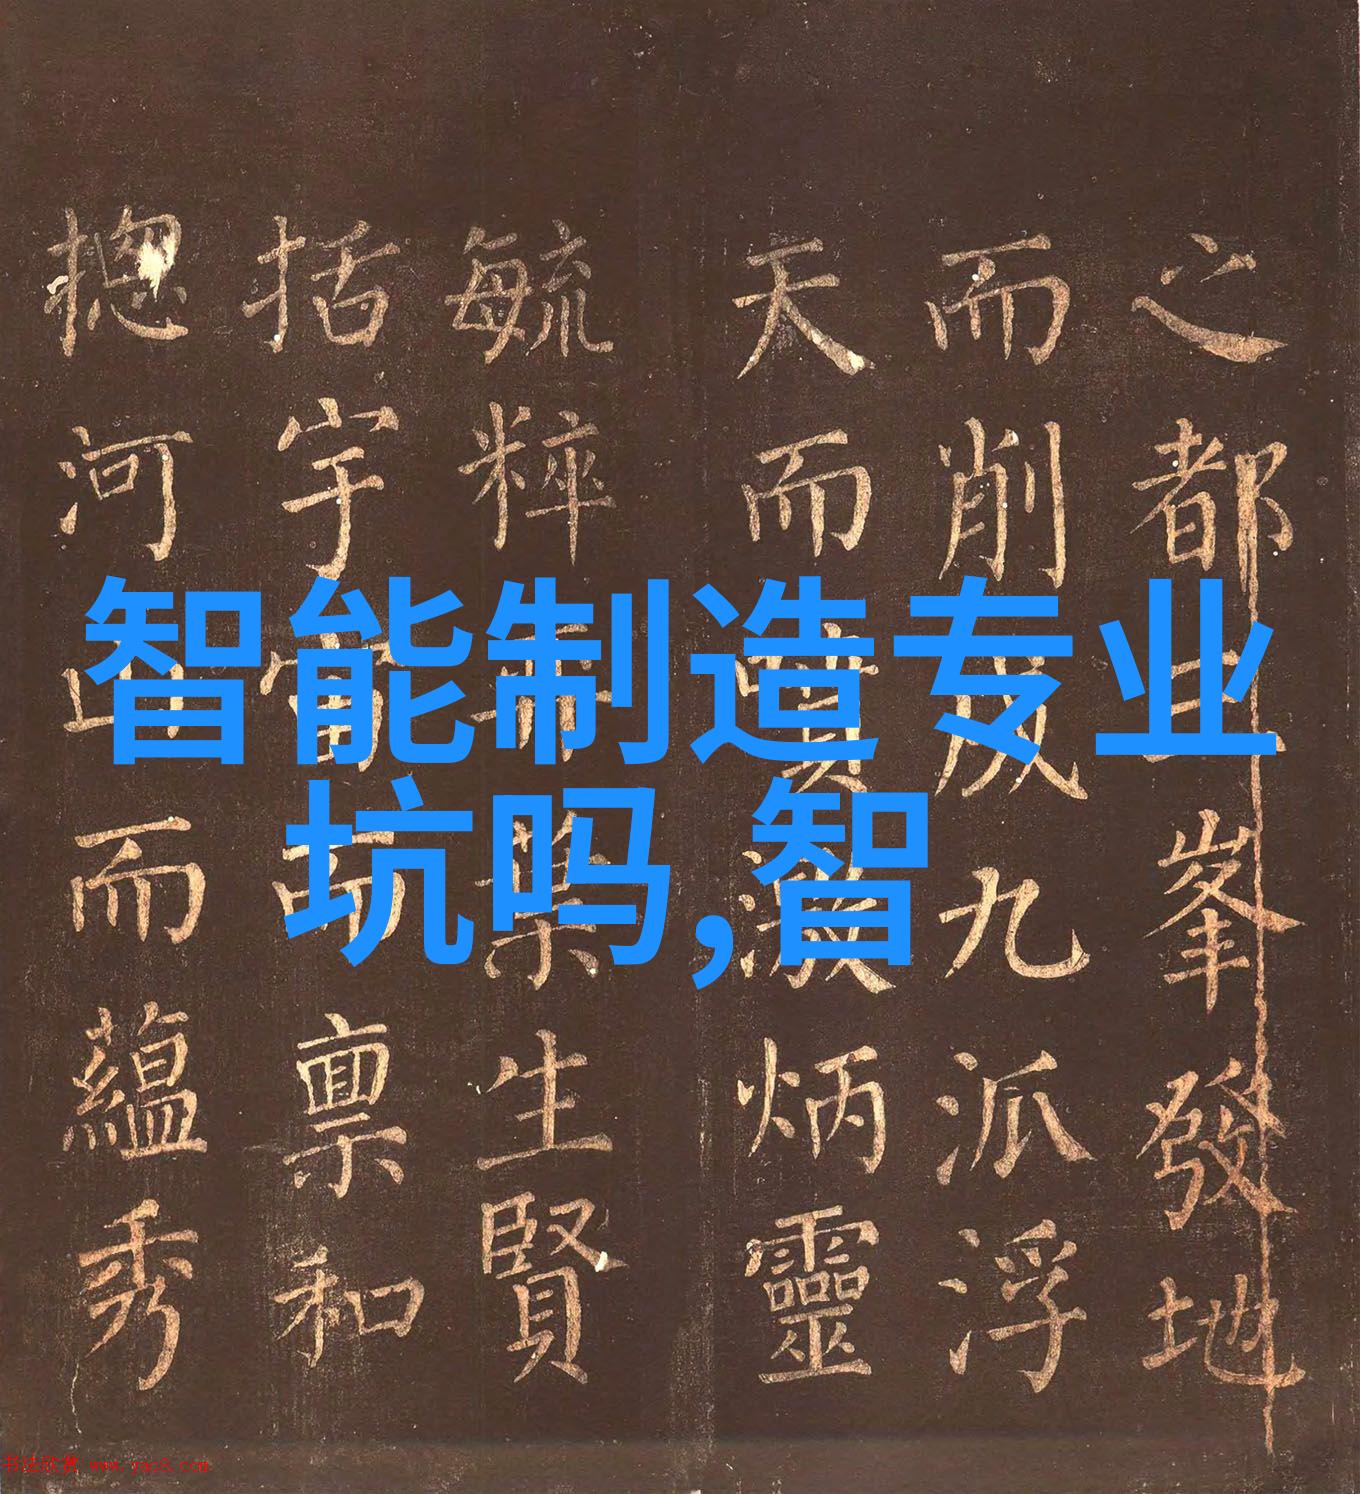 智能制造专业
坑吗,智
之都峯發地
而削成九派浮
天而噴激炳靈
毓粹葉生賢
括宇宙而禀和
揔河山而蘊秀
书法欣赏 www.yac8.com